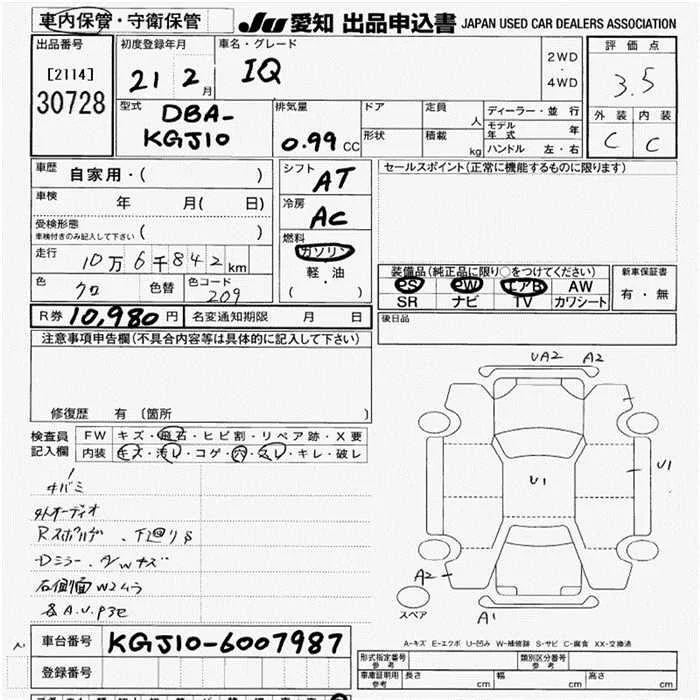 車内保管・守衛保管
JU 愛知 出品申込書 JAPAN USED CAR DEALERS ASSOCIATION
出品番号
[2114]
30728
初度登録年月
21 2 月
車名・グレード
IQ
2WD
・
4WD
評価点
3.5
外装 内装
C C
型式
DBA-
KGJ10
排気量
0.99 CC
ドア
形状
定員 人
積載 kg
ディーラー・並行
モデル年式 年
ハンドル 左・右
車歴 自家用・( )
車検 年 月( 日)
受検形態
車検付きのみ記入して下さい ( )
走行 10万6千842km
色 クロ 色替 色コード 209
シフト AT
冷房 AC
燃料
ガソリン
軽・油
( )
セールスポイント(正常に機能するものに限ります)
装備品(純正品に限り○をつけてください)
PS PW エアB AW
SR ナビ TV カワシート
新車保証書
有・無
R券 10,980円 名変通知期限 月 日
後日品
注意事項申告欄(不具合内容等は具体的に記入して下さい)
修復歴 有 〔箇所 〕
検査員
記入欄
FW キズ・飛石・ヒビ割・リペア跡・X要
内装 キズ・汚レ・コゲ・穴・スレ・キレ・破レ
外オーディオ
下回りS
右側面W2ムラ
UA2 A2
U1
U1
A2
A1
スペア
A-キズ E-エクボ U-凹み W-補修跡 S-サビ C-腐食 XX-交換済
車台番号 KGJ10-6007987
登録番号
型式指定番号
参考
類別区分番号
参考
車庫証明用
参考
長さ cm 幅 cm 高さ cm